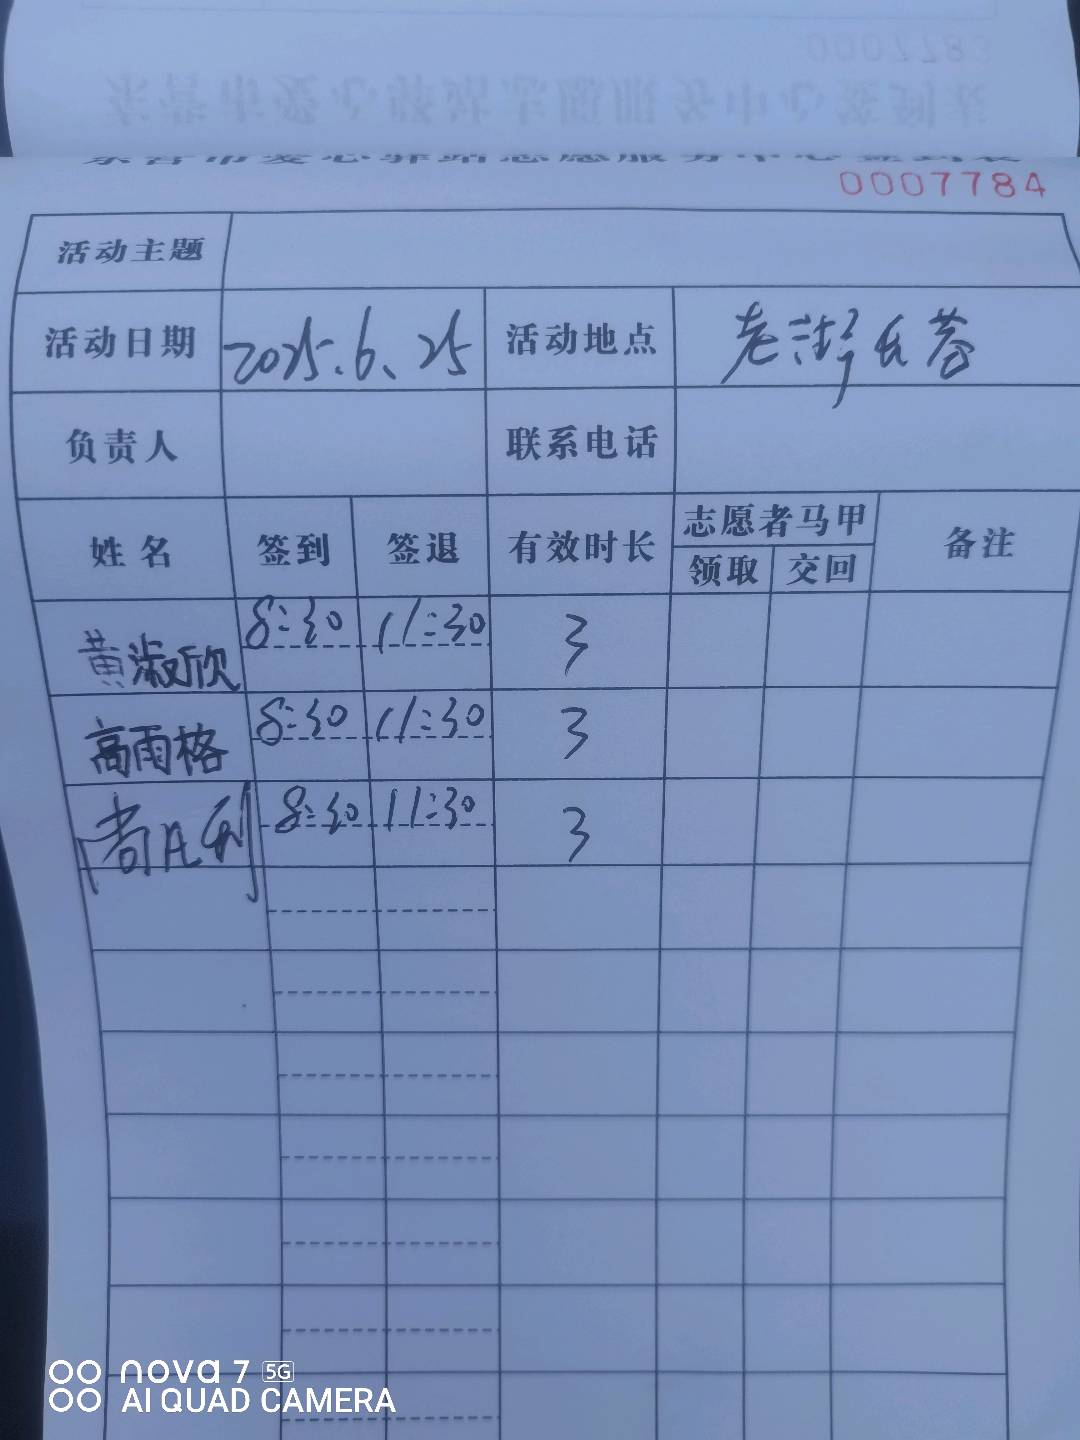 东营市爱心驿站志愿服务中心签到表
0007784
活动主题
活动日期 2025.6.25 活动地点 老街长巷
负责人 联系电话
姓名 签到 签退 有效时长 志愿者马甲 备注
领取 交回
黄淑欣 8:30 11:30 3
高雨格 8:30 11:30 3
8:30 11:30 3
nova 7 5G
AI QUAD CAMERA